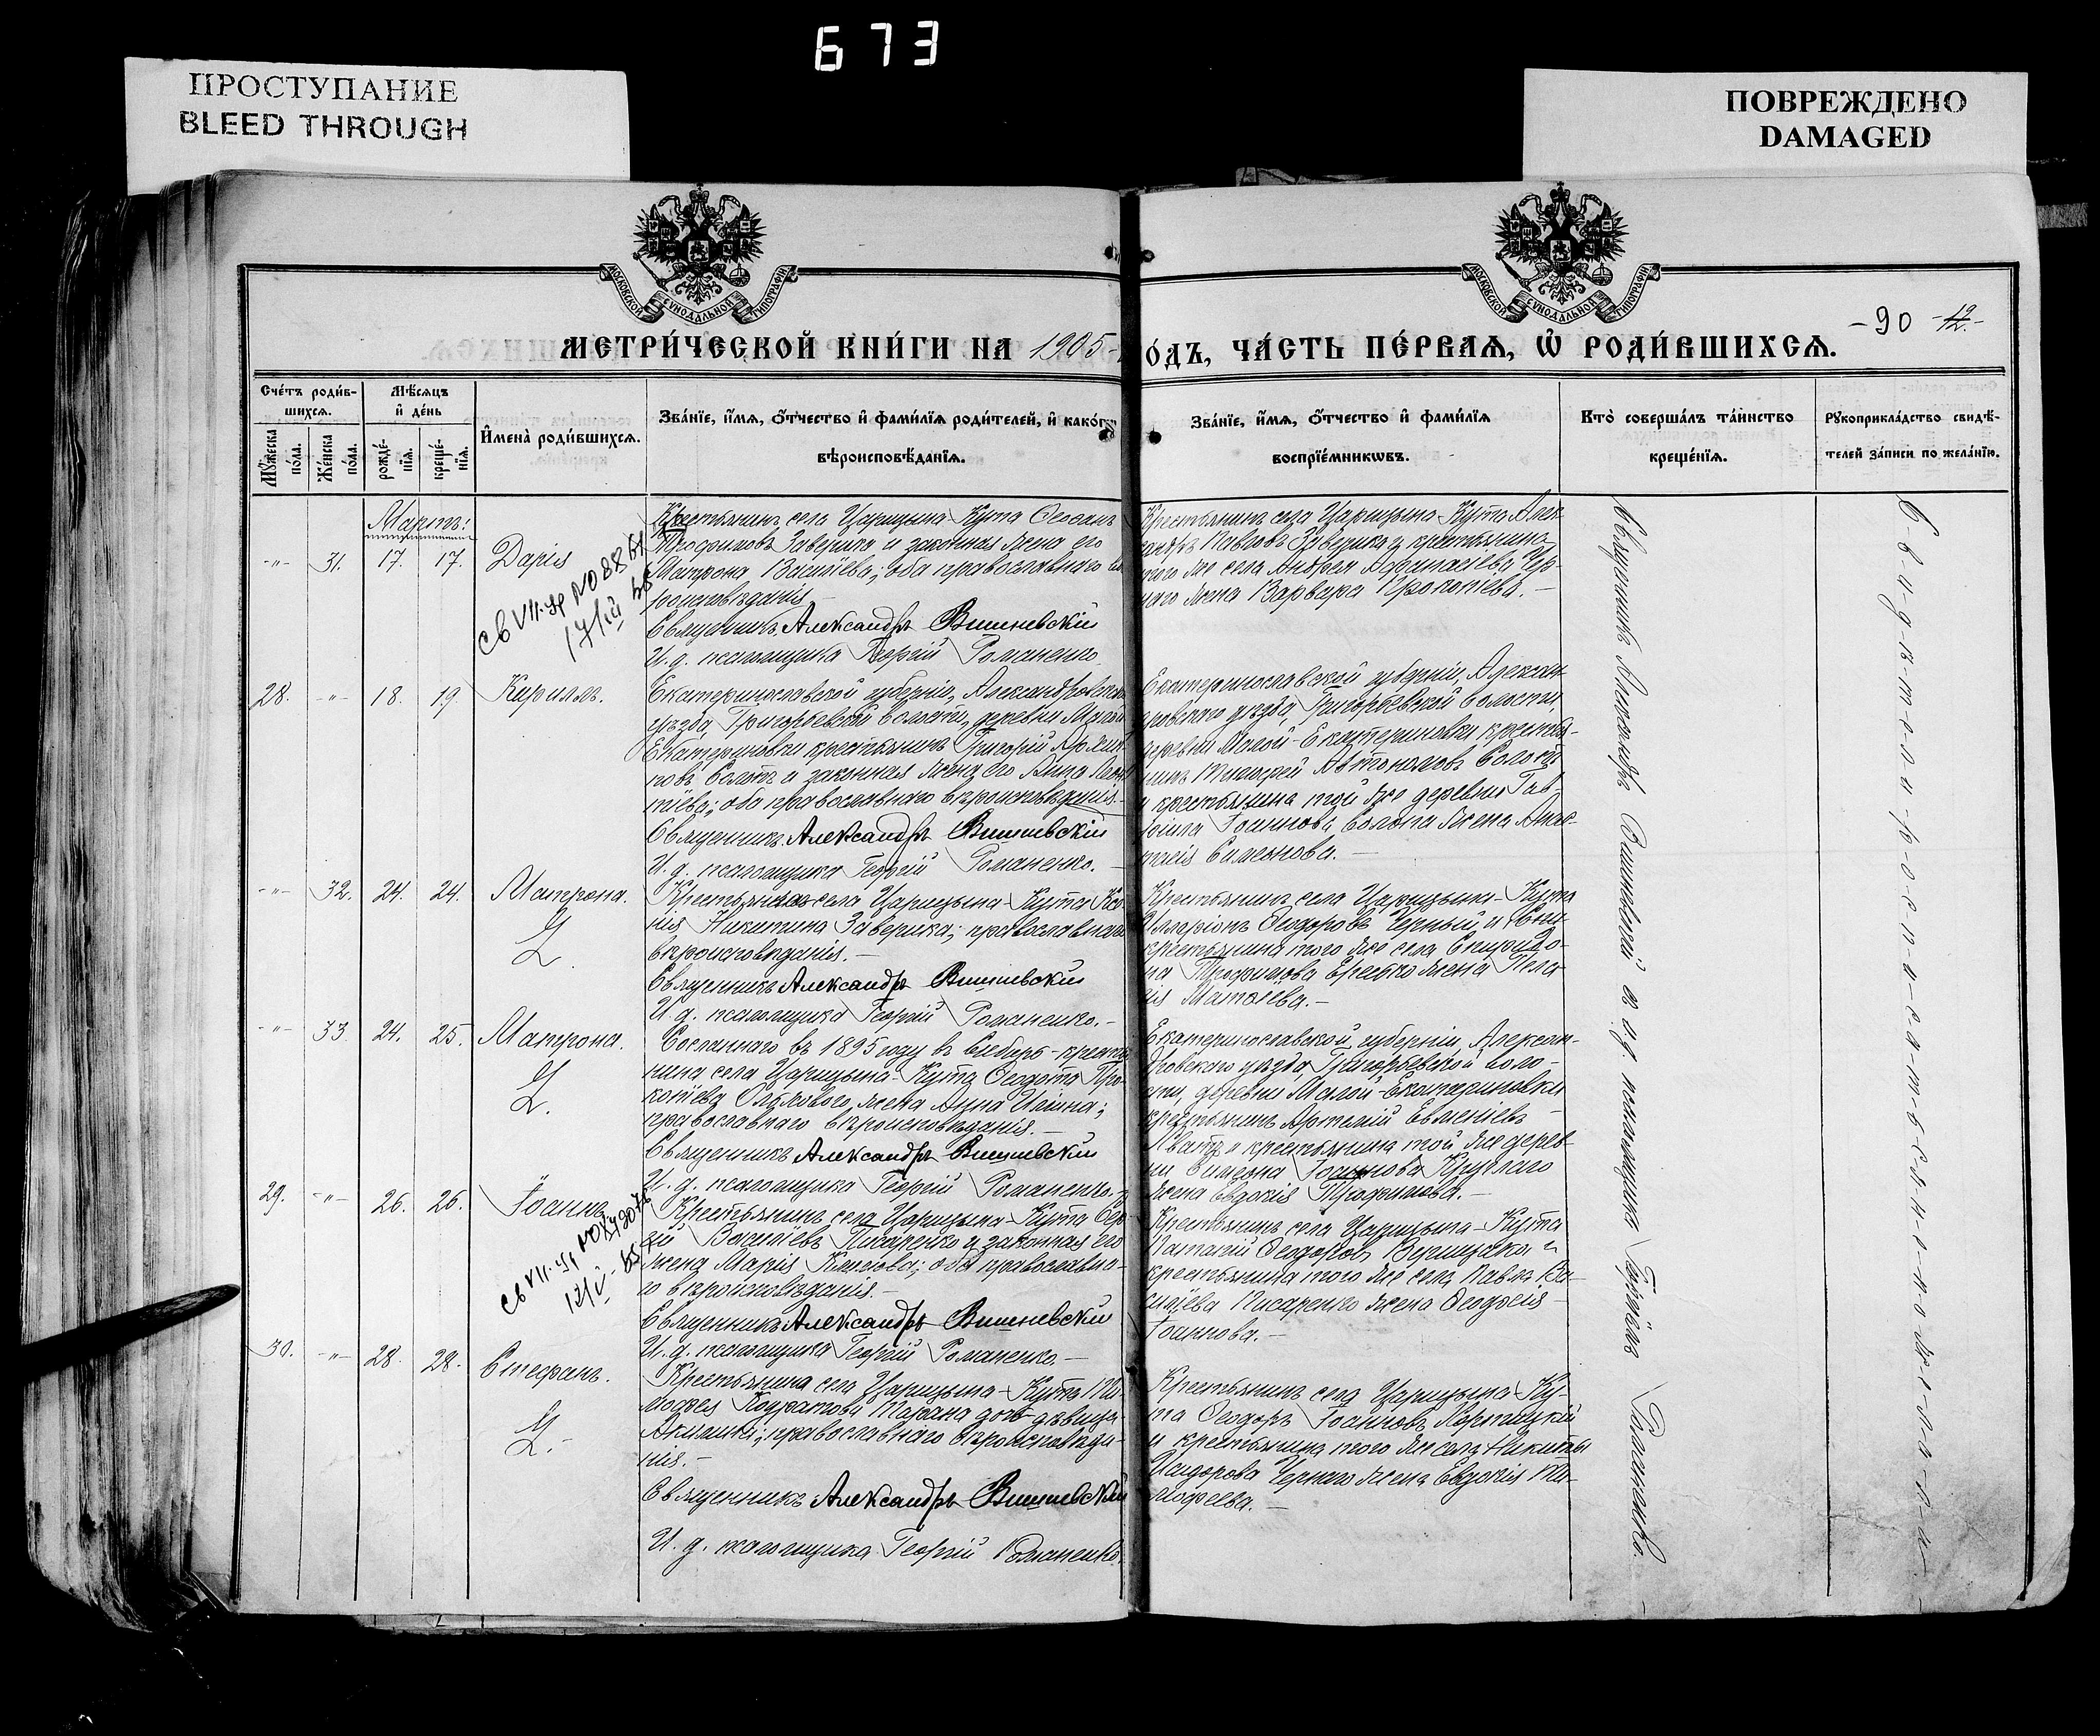 673
ПРОСТУПАНИЕ
BLEED THROUGH
ПОВРЕЖДЕНО
DAMAGED
МОСКОВСКОЙ СѴНОДАЛЬНОЙ ТИПОГРАФІИ
МОСКОВСКОЙ СѴНОДАЛЬНОЙ ТИПОГРАФІИ
-90 -12.-
МЕТРИ́ЧЕСКОЙ КНИ́ГИ НА 1905-
О́ДЪ, ЧА́СТЬ ПЕ́РВАѦ, Ѡ҆ РОДИ́ВШИХСѦ.
Сче́тъ роди́в-
шихсѧ.
Мꙋ́жеска по́ла.
Же́нска по́ла.
Мѣ́сѧцъ
и҆ де́нь
рожде́-
нїѧ.
креще́-
нїѧ.
И҆мена̀ роди́вшихсѧ.
Зва́нїе, и҆́мѧ, ѻ҆́тчество и҆ фами́лїѧ роди́телей, и҆ како́гѡ
вѣроисповѣ́данїѧ.
Зва́нїе, и҆́мѧ, ѻ҆́тчество и҆ фами́лїѧ
воспрїе́мникѡвъ.
Кто̀ соверша́лъ та́инство
креще́нїѧ.
Рꙋкоприкла́дство свидѣ́-
телей за́писи по жела́нїю.
Мартъ:
-"- 31. 17. 17. Дарія
Крестьянинъ села Царицына-Кута Ѳеофанъ
Трофимовъ Заверика и законная жена его
Матрона Васильева; оба православнаго вѣ
роисповѣданія.
Священникъ Александръ Вишневскій
И. д. псаломщика Георгій Романенко.
Крестьянинъ села Царицына-Кута Алек-
сандръ Павловъ Заверика и крестьянина
того же села Андрея Аѳанасіева Чер-
наго жена Варвара Прокопіева.-
28. -"- 18. 19. Кириллъ.
Екатеринославской губерніи, Александровскаго
уѣзда, Григорьевской волости, деревни Малой
Екатериновки крестьянинъ Григорій
и законная жена его Анна
оба православнаго вѣроисповѣданія.-
Священникъ Александръ Вишневскій
И. д. псаломщика Георгій Романенко.-
Екатеринославской губерніи, Алексан-
дровскаго уѣзда, Григорьевской волости,
деревни Малой-Екатериновки крестья-
нинъ Автономовъ
и крестьянина той же деревни Гав-
ріила Іоаннова жена Анас-
тасія Симеонова.-
-"- 32. 24. 24. Матрона.
Крестьянка села Царицына-Кута Ксе
нія Никитина Заверика; православнаго
вѣроисповѣданія.-
Священникъ Александръ Вишневскій
И. д. псаломщика Георгій Романенко.-
Крестьянинъ села Царицына-Кута
Иларіонъ Ѳеодоровъ Черный и
крестьянина того же села Спиридо-
на Трофимова жена Пела-
гія Матѳіева.-
-"- 33. 24. 25. Матрона.
Сосланнаго въ 1895 году въ Сибирь крестья
нина села Царицына-Кута Ѳеодота Про-
копіева жена Анна Ильина;
православнаго вѣроисповѣданія.-
Священникъ Александръ Вишневскій
И. д. псаломщика Георгій Романенко.-
Екатеринославской губерніи, Алексан-
дровскаго уѣзда, Григорьевской воло-
сти, деревни Малой-Екатериновки
крестьянинъ Артемій Евменіевъ
и крестьянина той же дерев-
ни Симеона Іоаннова
жена Евдокія Трофимова.-
29. -"- 26. 26. Іоаннъ
Крестьянинъ села Царицына-Кута Сер
гій Васильевъ Писаренко и законная его
жена Марія Климова; оба православна-
го вѣроисповѣданія.-
Священникъ Александръ Вишневскій
И. д. псаломщика Георгій Романенко.-
Крестьянинъ села Царицына-Кута
Ѳеодоровъ и
крестьянина того же села Павла Ва-
сильева Писаренко жена Ѳеодосія
Іоаннова.-
30. -"- 28. 28. Стефанъ.
Крестьянина села Царицына-Кута Ти-
моѳея дочь дѣвица
православнаго вѣроисповѣда-
нія.-
Священникъ Александръ Вишневскій
И. д. псаломщика Георгій Романенко.
Крестьянинъ села Царицына Ку-
та Ѳеодоръ Іоанновъ
и крестьянина того же села Никиты
Исидорова Чернаго жена Евдокія Ти-
моѳеева.-
Священникъ Александръ Вишневскій и и. д. псаломщика Георгій Романенко.